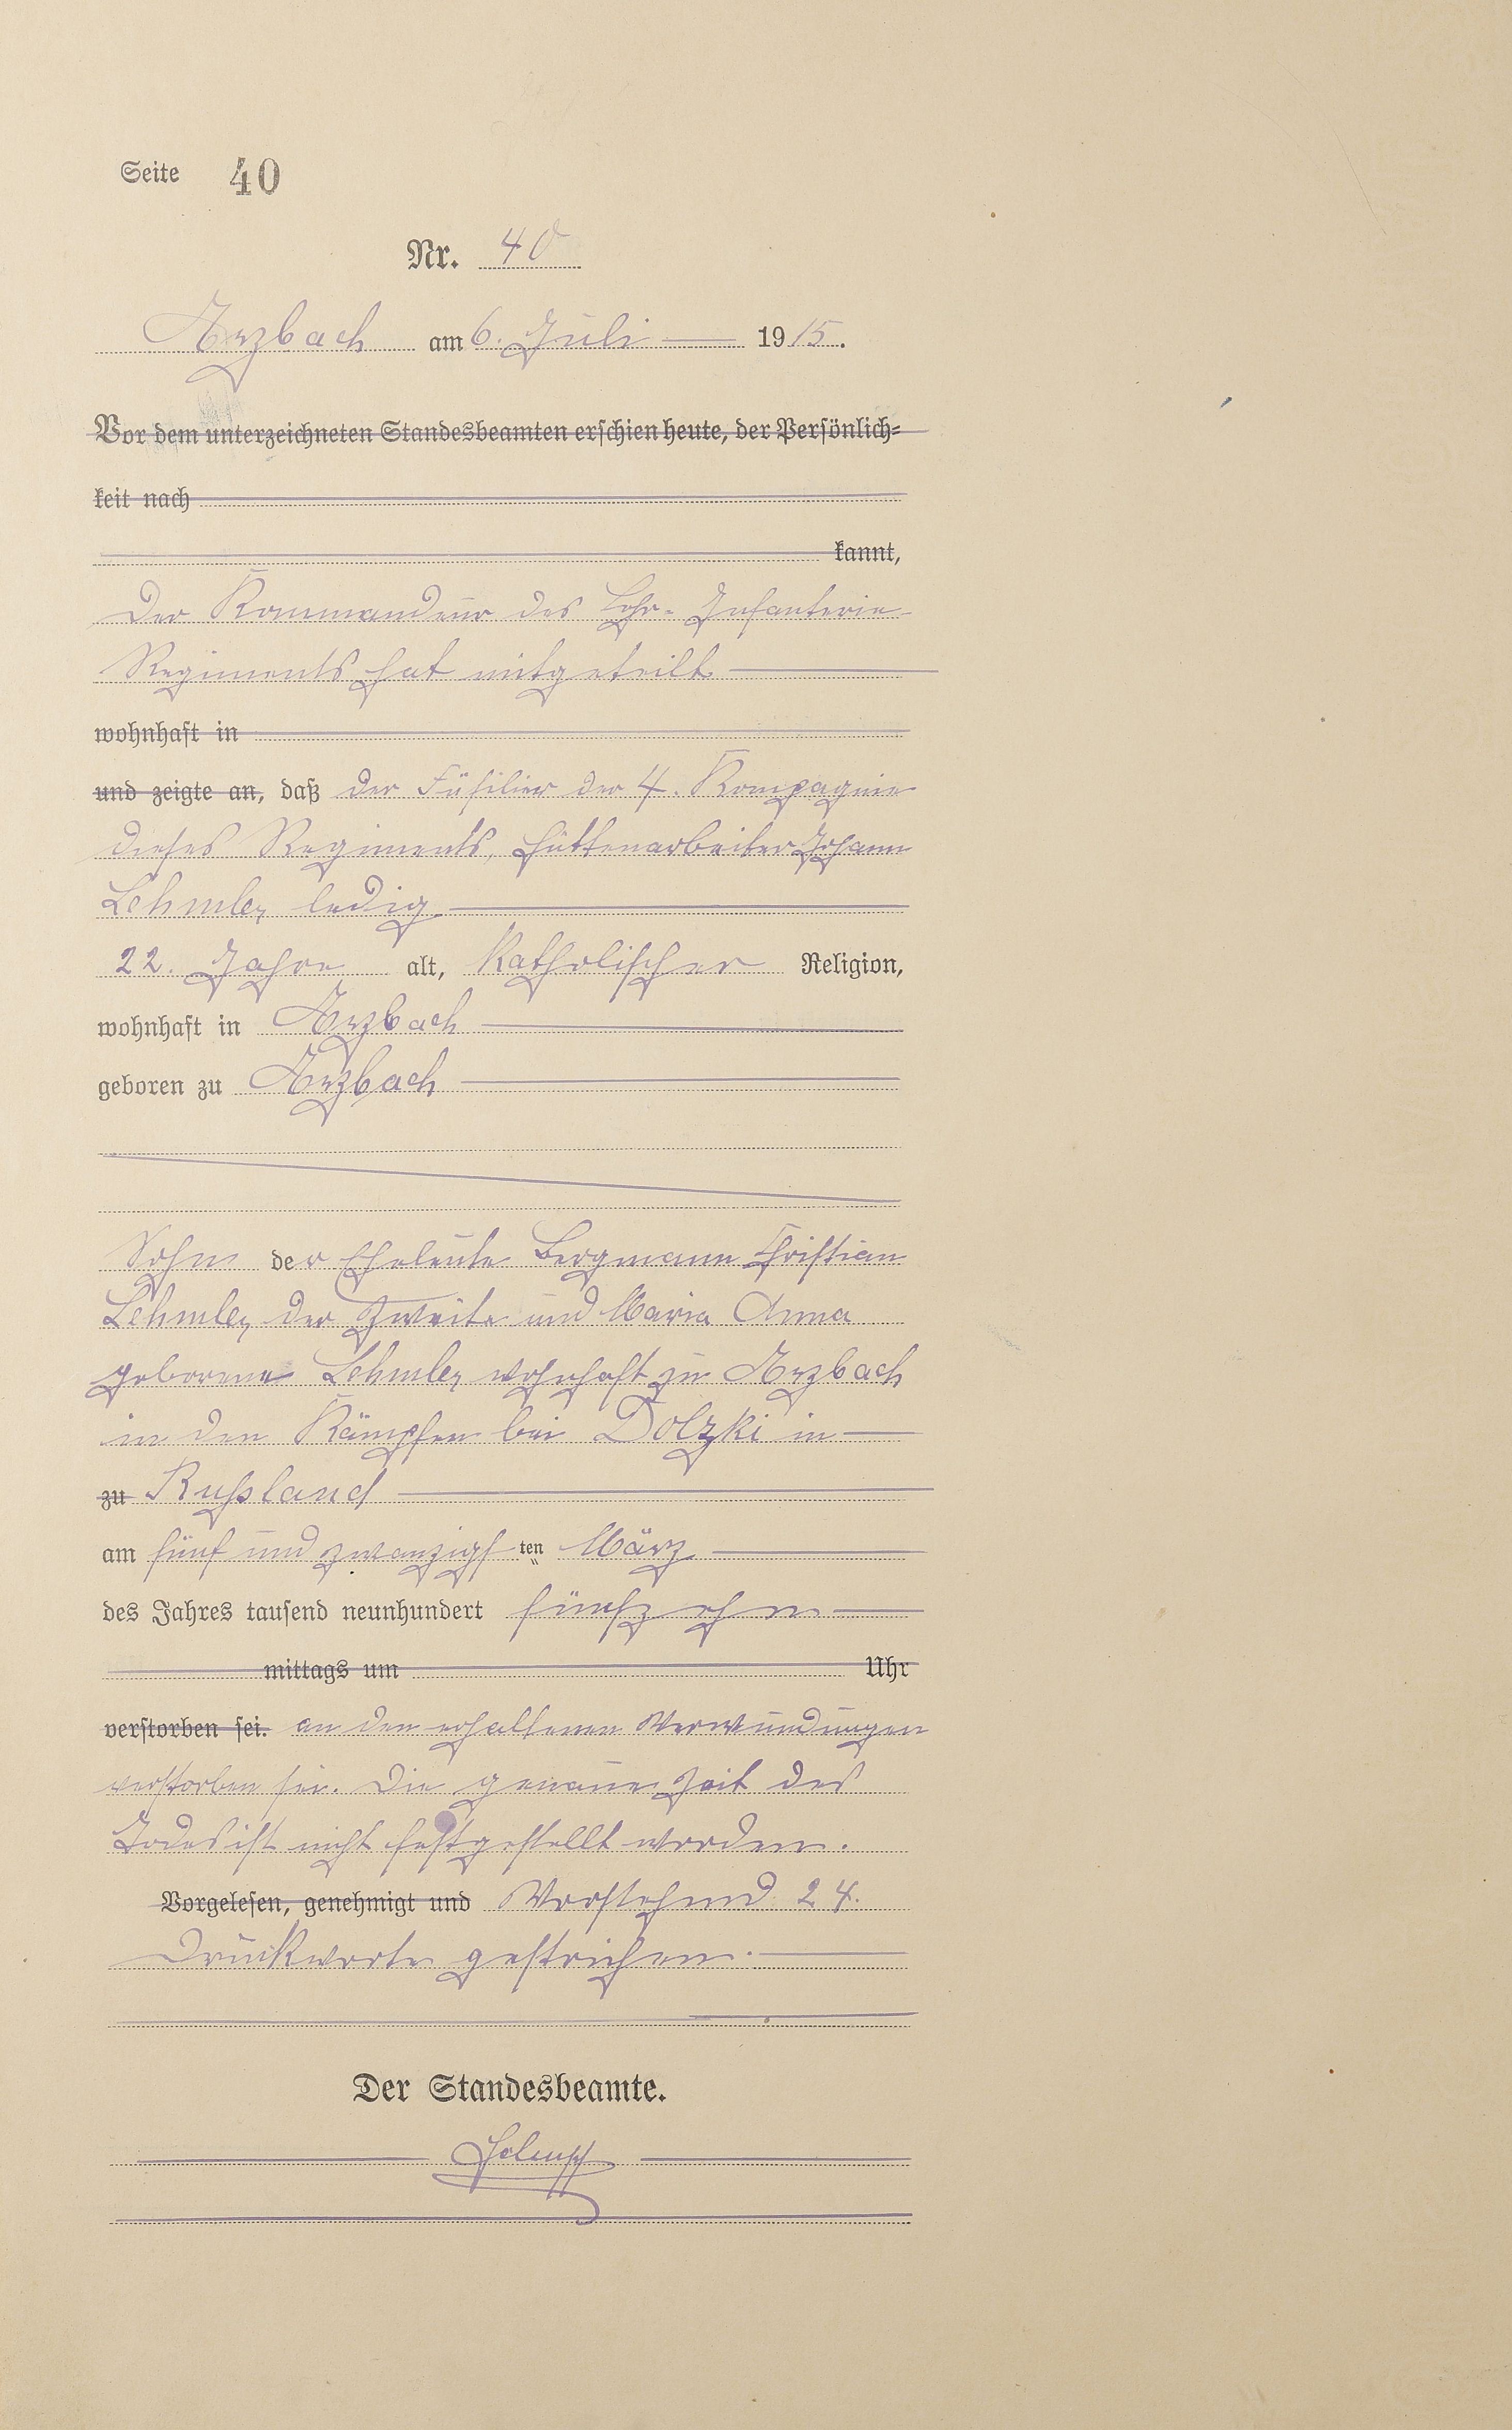 Seite 40
Nr. 40
Arzbach am 6. Juli 1915.
Vor dem unterzeichneten Standesbeamten erschien heute, der Persönlich-
keit nach
kannt,
Der Kommandeur des Lehr-Infanterie-
Regiments hat mitgeteilt
wohnhaft in
und zeigte an, daß der Füsilier der 4. Kompagnie
dieses Regiments, Hüttenarbeiter Johann
Lehmler ledig
22. Jahre alt, katholischer Religion,
wohnhaft in Arzbach
geboren zu Arzbach
Sohn der Eheleute Bergmann Christian
Lehmler der Zweite und Maria Anna
geborene Lehmler wohnhaft zu Arzbach
in den Kämpfen bei Dolzki in
zu Russland
am fünf und zwanzigsten März
des Jahres tausend neunhundert fünfzehn
mittags um Uhr
verstorben sei. an den erhaltenen Verwundungen
verstorben sei. Die genaue Zeit des
Todes ist nicht festgestellt worden.
Vorgelesen, genehmigt und Vorstehend 24.
Druckworte gestrichen.
Der Standesbeamte.